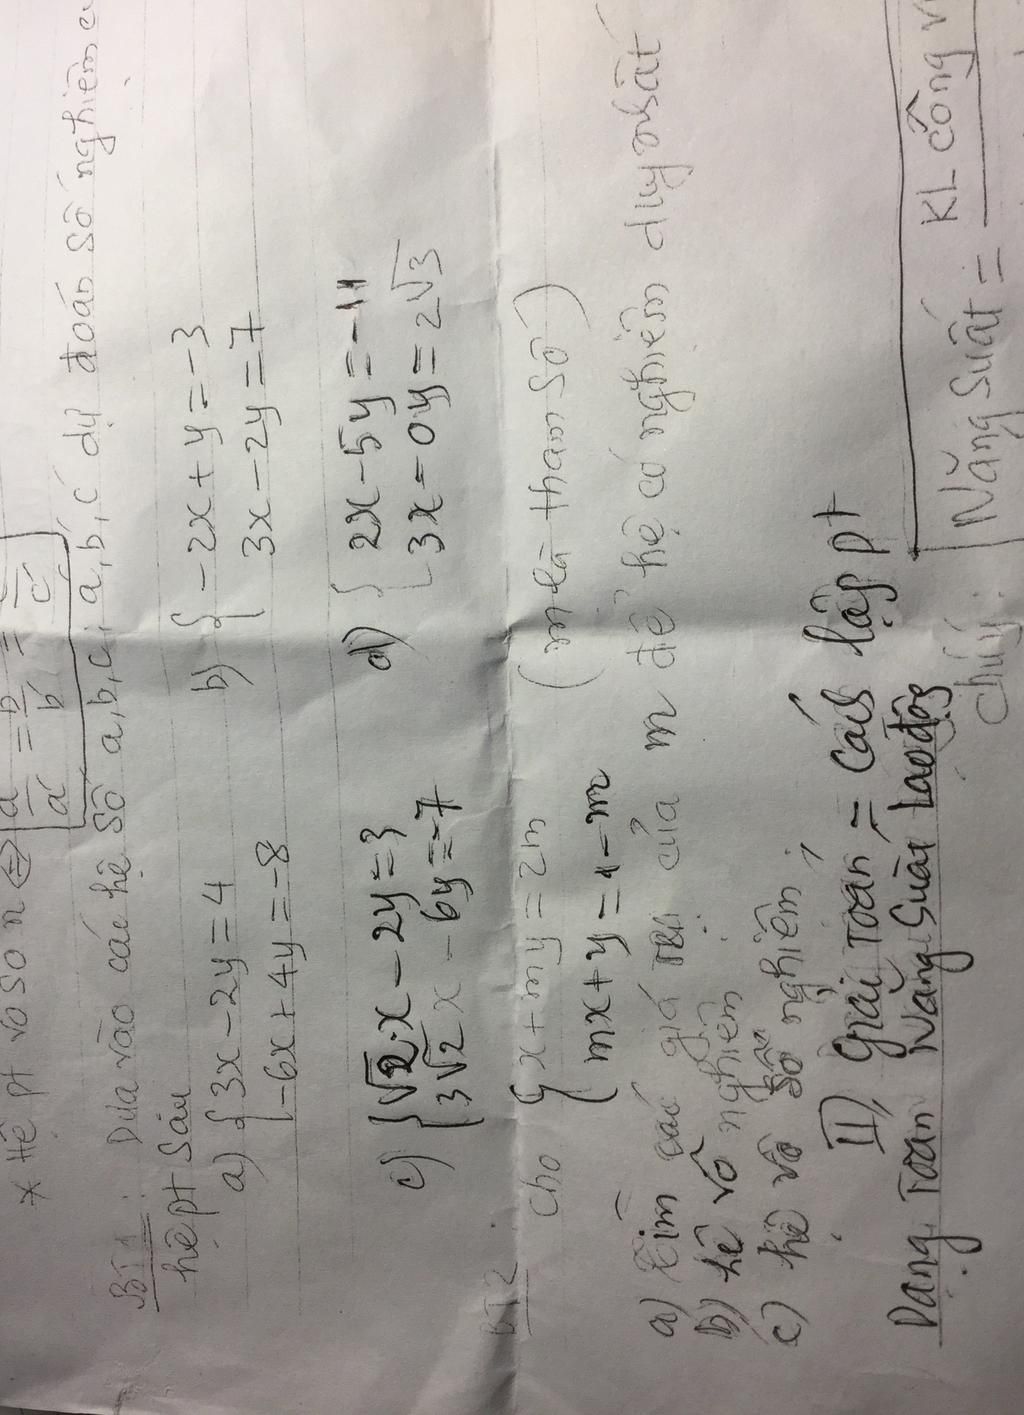 * Hệ pt vô số n ⇔ a/a' = b/b' = c/c'
BT1: Dựa vào các hệ số a, b, c, a', b', c' dự đoán số nghiệm
hệ pt sau
a) { 3x - 2y = 4
-6x + 4y = -8
b) { -2x + y = -3
3x - 2y = 7
c) { √2.x - 2y = 3
3√2 x - 6y = -7
d) { 2x - 5y = -11
3x = 0y = 2√3
BT2 Cho { x + my = 2m (m là tham số)
mx + y = 1 - m
a) Tìm các giá trị của m để hệ có nghiệm duy nhất
b) hệ vô nghiệm
c) hệ vô số nghiệm
II) Giải Toán = Cách lập pt
Dạng Toán Năng Suất Lao động
chú ý: Năng Suất = KL công